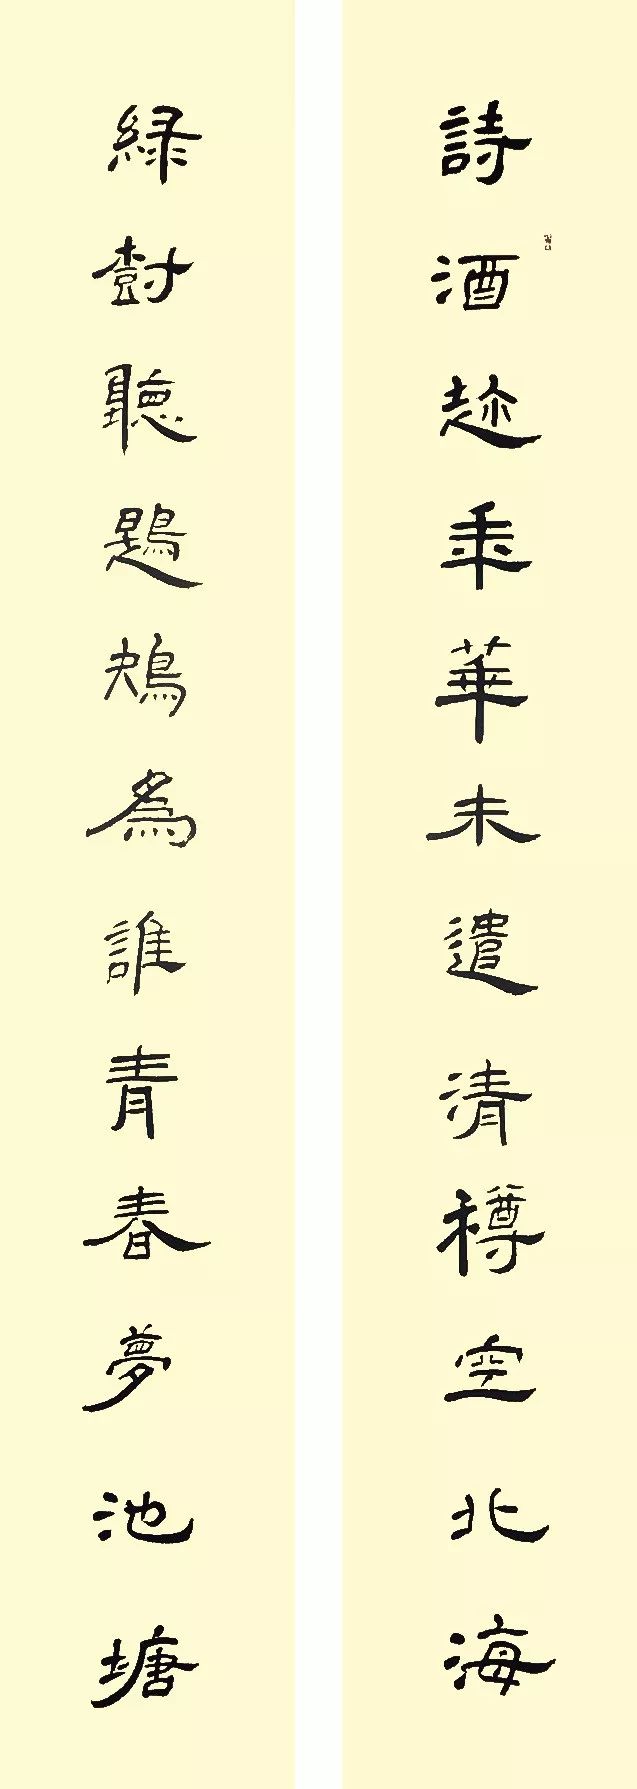 詩酒趂年華未遣清樽空北海
緑樹聽鶗鴂為誰青春夢池塘